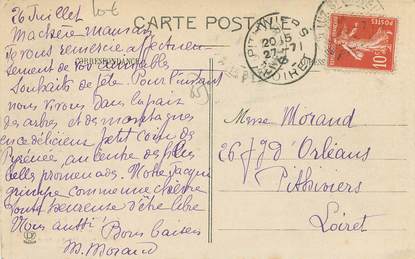 26 Juillet
CARTE POSTALE
Ma chère maman
Je vous remercie affectueuse-
ment de vos aimables
CORRESPONDANCE
souhaits de fête. Pour l'instant
nous vivons dans la paix
des arbres et des montagnes
en ce délicieux petit coin de
Pyrénée, au centre des plus
belles promenades. Notre Jacque
grimpe comme une chèvre
tout heureuse d'être libre
Nous aussi! Bons baisers
M. Morand
20 15
27-7
LOIRET
10
Mme Morand
26 fg d'Orléans
Pithiviers
Loiret